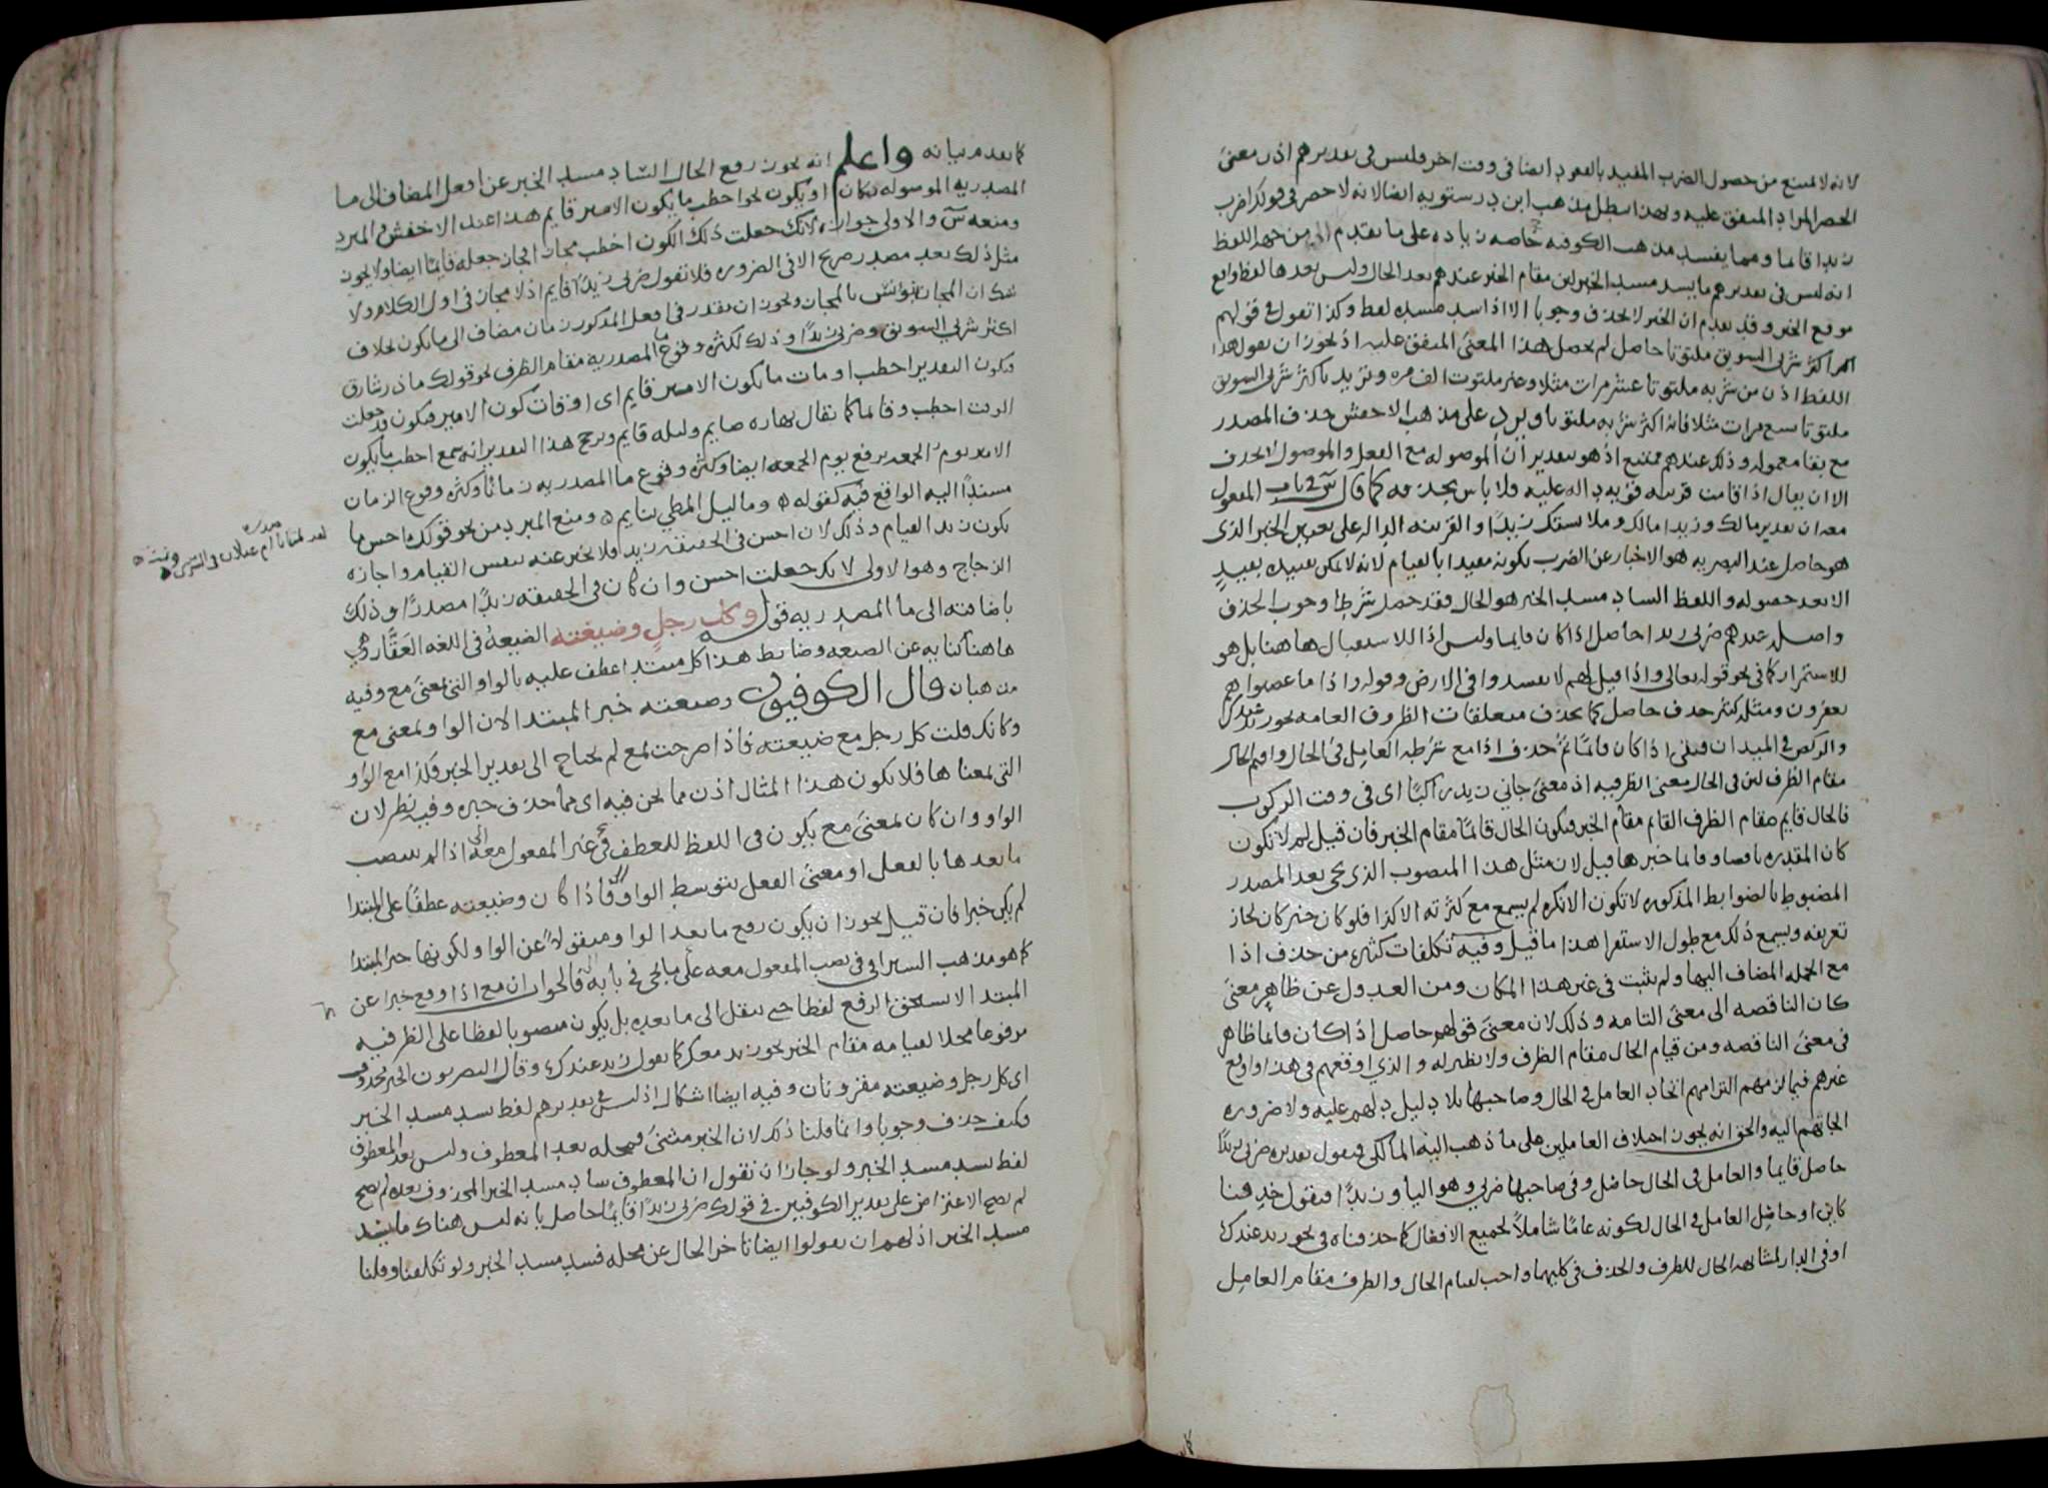 لانه لا يمنع من حصول الضرب المقيد بالقعود ايضا في وقت اخر فليس في تقديرهم اذن معنى
الحصر المراد المتفق عليه وبهذا يبطل مذهب ابن درستويه ايضا لانه لا حصر في قولك اضرب
زيدا قائما ومما يفسد مذهب الكوفيه خاصه زياده على ما تقدم من جهه اللفظ
انه ليس في تقديرهم ما يسد مسد الخبر لان مقام الخبر عندهم بعد الحال وليس بعدها لفظ واقع
موقع الخبر وقد تقدم ان الخبر لا يحذف وجوبا الا اذا سد مسده لفظ وكذا تقول في قولهم
اكثر شربي السويق ملتوتا حاصل لم يحصل هذا المعنى المتفق عليه اذ يجوز ان يقول هذا
اللفظ اذن من شربه ملتوتا عشر مرات مثلا وغير ملتوت الف مره ويريد باكثر شربي السويق
ملتوتا سبع مرات مثلا فانه اكثر شربه ملتوتا ويرد على مذهب الاخفش حذف المصدر
مع بقا معموله وذلك عندهم ممتنع اذ هو بتقدير ان الموصوله مع الفعل والموصول لا يحذف
الا ان يقال اذا قامت قرينه قويه داله عليه فلا باس بحذفه كما قال س في باب المفعول
معه ان تقدير مالك وزيدا مالك وملابستك زيدا والقرينه الداله على تعيين الخبر الذي
هو حاصل عند البصريه هو الاخبار عن الضرب بكونه مقيدا بالقيام لانه لا يمكن تقييده بقيد
الا بعد حصوله واللفظ الساد مسد الخبر هو الحال فقد حصل شرطا وجوب الحذف
واصله عندهم ضربي زيدا حاصل اذا كان قايما وليس اذا للاستقبال هاهنا بل هو
للاستمرار كما في نحو قوله تعالى واذا قيل لهم لا تفسدوا في الارض وقوله واذا ما غضبوا هم
يغفرون ومثله كثير حذف حاصل كما يحذف متعلقات الظروف العامه نحو زيد عندك
والركض في الميدان فبقي اذا كان قائما ثم حذف اذا مع شرطه العامل في الحال واقيم الحال
مقام الظرف لان في الحال معنى الظرفيه اذ معنى جاني زيد راكبا اي في وقت الركوب
فالحال قايم مقام الظرف القايم مقام الخبر فيكون الحال قائما مقام الخبر فان قيل لم لا تكون
كان المقدره ناقصه وقائما خبرها قيل لان مثل هذا المنصوب الذي يجي بعد المصدر
المضبوط بالضوابط المذكوره لا تكون الا نكره لم يسمع مع كثرته الا كذا فلو كان خبر كان لجاز
تعريفه ويسمع ذلك مع طول الاستقرا هذا ما قيل وفيه تكلفات كثيره من حذف اذا
مع الجمله المضاف اليها ولم يثبت في غير هذا المكان ومن العدول عن ظاهر معنى
كان الناقصه الى معنى التامه وذلك لان معنى قولهم حاصل اذا كان قائما ظاهر
في معنى الناقصه ومن قيام الحال مقام الظرف ولا نظير له والذي اوقعهم في هذا واوقع
غيرهم فيما لزمهم التزامهم اتحاد العامل في الحال وصاحبها بلا دليل دلهم عليه ولا ضروره
الجاتهم اليه والحق انه يجوز اختلاف العاملين على ما ذهب اليه المالكي فنقول تقديره ضربي زيدا
حاصل قايما والعامل في الحال حاصل وفي صاحبها ضربي وهو اليا وزيدا فنقول حذفنا
كاين او حاصل العامل في الحال لكونه عاما شاملا لجميع الافعال كما حذفناه في نحو زيد عندك
او في الدار لمشابهه الحال للظرف والحذف في كليهما واجب لقيام الحال والظرف مقام العامل
كما تقدم بيانه واعلم انه يجوز رفع الحال الساد مسد الخبر عن افعل المضاف الى ما
المصدريه الموصوله بكان او يكون نحو اخطب ما يكون الامير قايم هذا عند الاخفش والمبرد
ومنعه س والاولى جوازه لانك جعلت ذلك الكون اخطب مجازا فجاز جعله قايما ايضا ولا يجوز
مثل ذلك بعد مصدر صريح الا في الضروره فلا تقول ضربي زيدا قايم اذ لا مجاز في اول الكلام ولا
شك ان المجاز يونس بالمجاز ويجوز ان يقدر في افعل المذكور زمان مضاف الى ما يكون بخلاف
اكثر شربي السويق وضربي زيدا وذلك لكثره وقوع ما المصدريه مقام الظرف نحو قولك ما ذر شارق
فيكون التقدير اخطب اوقات ما يكون الامير قايم اي اوقات كون الامير فتكون قد جعلت
الوقت اخطب وقائما كما يقال نهاره صايم وليله قايم ويرجح هذا التقدير انه سمع اخطب ما يكون
الامير يوم الجمعه برفع يوم الجمعه ايضا وكثره وقوع ما المصدريه زمانا وكثره وقوع الزمان
مسندا اليه الواقع فيه كقوله وما ليل المطي بنايم ومنع المبرد من نحو قولك احسن ما
يكون زيد القيام وذلك لان احسن في الحقيقه زيد فلا يخبر عنه بنفس القيام واجازه
الزجاج وهو الاولى لانك جعلت احسن وان كان في الحقيقه زيدا مصدرا وذلك
باضافته الى ما المصدريه قوله وكل رجل وضيعته الضيعه في اللغه العقار وهي
هاهنا كنايه عن الصنعه وضابط هذا كل مبتدا عطف عليه بالواو التي بمعنى مع وفيه
مذهبان قال الكوفيون وضيعته خبر المبتدا لان الواو بمعنى مع
وكانك قلت كل رجل مع ضيعته فاذا صرحت بمع لم يحتاج الى تقدير الخبر فكذا مع الواو
التي بمعناها فلا يكون هذا المثال اذن مما نحن فيه اي مما حذف خبره وفيه نظر لان
الواو وان كان بمعنى مع يكون في اللفظ للعطف في غير المفعول معه اذا لم ينصب
ما بعدها بالفعل او معنى الفعل بتوسط الواو فاذا كان وضيعته عطفا على المبتدا
لم يكن خبرا فان قيل يجوز ان يكون رفع ما بعد الواو منقولا عن الواو لكونها خبر المبتدا
كما هو مذهب السيرافي في نصب المفعول معه على ما يجي في بابه فالجواب ان مع اذا وقع خبرا عن
المبتدا لا يستحق الرفع لفظا حتى ينقل الى ما بعده بل يكون منصوبا لفظا على الظرفيه
مرفوعا محلا لقيامه مقام الخبر نحو زيد معكم كما تقول زيد عندك وقال البصريون الخبر محذوف
اي كل رجل وضيعته مقرونان وفيه ايضا اشكال اذ ليس في تقديرهم لفظ يسد مسد الخبر
فكيف حذف وجوبا وانما قلنا ذلك لان الخبر مثنى فمحله بعد المعطوف وليس بعد المعطوف
لفظ يسد مسد الخبر ولو جاز ان نقول ان المعطوف ساد مسد الخبر المحذوف بعده لم يصح
لم يصح الاعتراض على تقدير الكوفيين في قولك ضربي زيدا قايما حاصل بانه ليس هناك ما يسد
مسد الخبر اذ لهم ان يقولوا ايضا تاخر الحال عن محله فسد مسد الخبر ولو تكلفنا وقلنا
صدره
لقد لمتنا يا ام غيلان في السرى ونمت